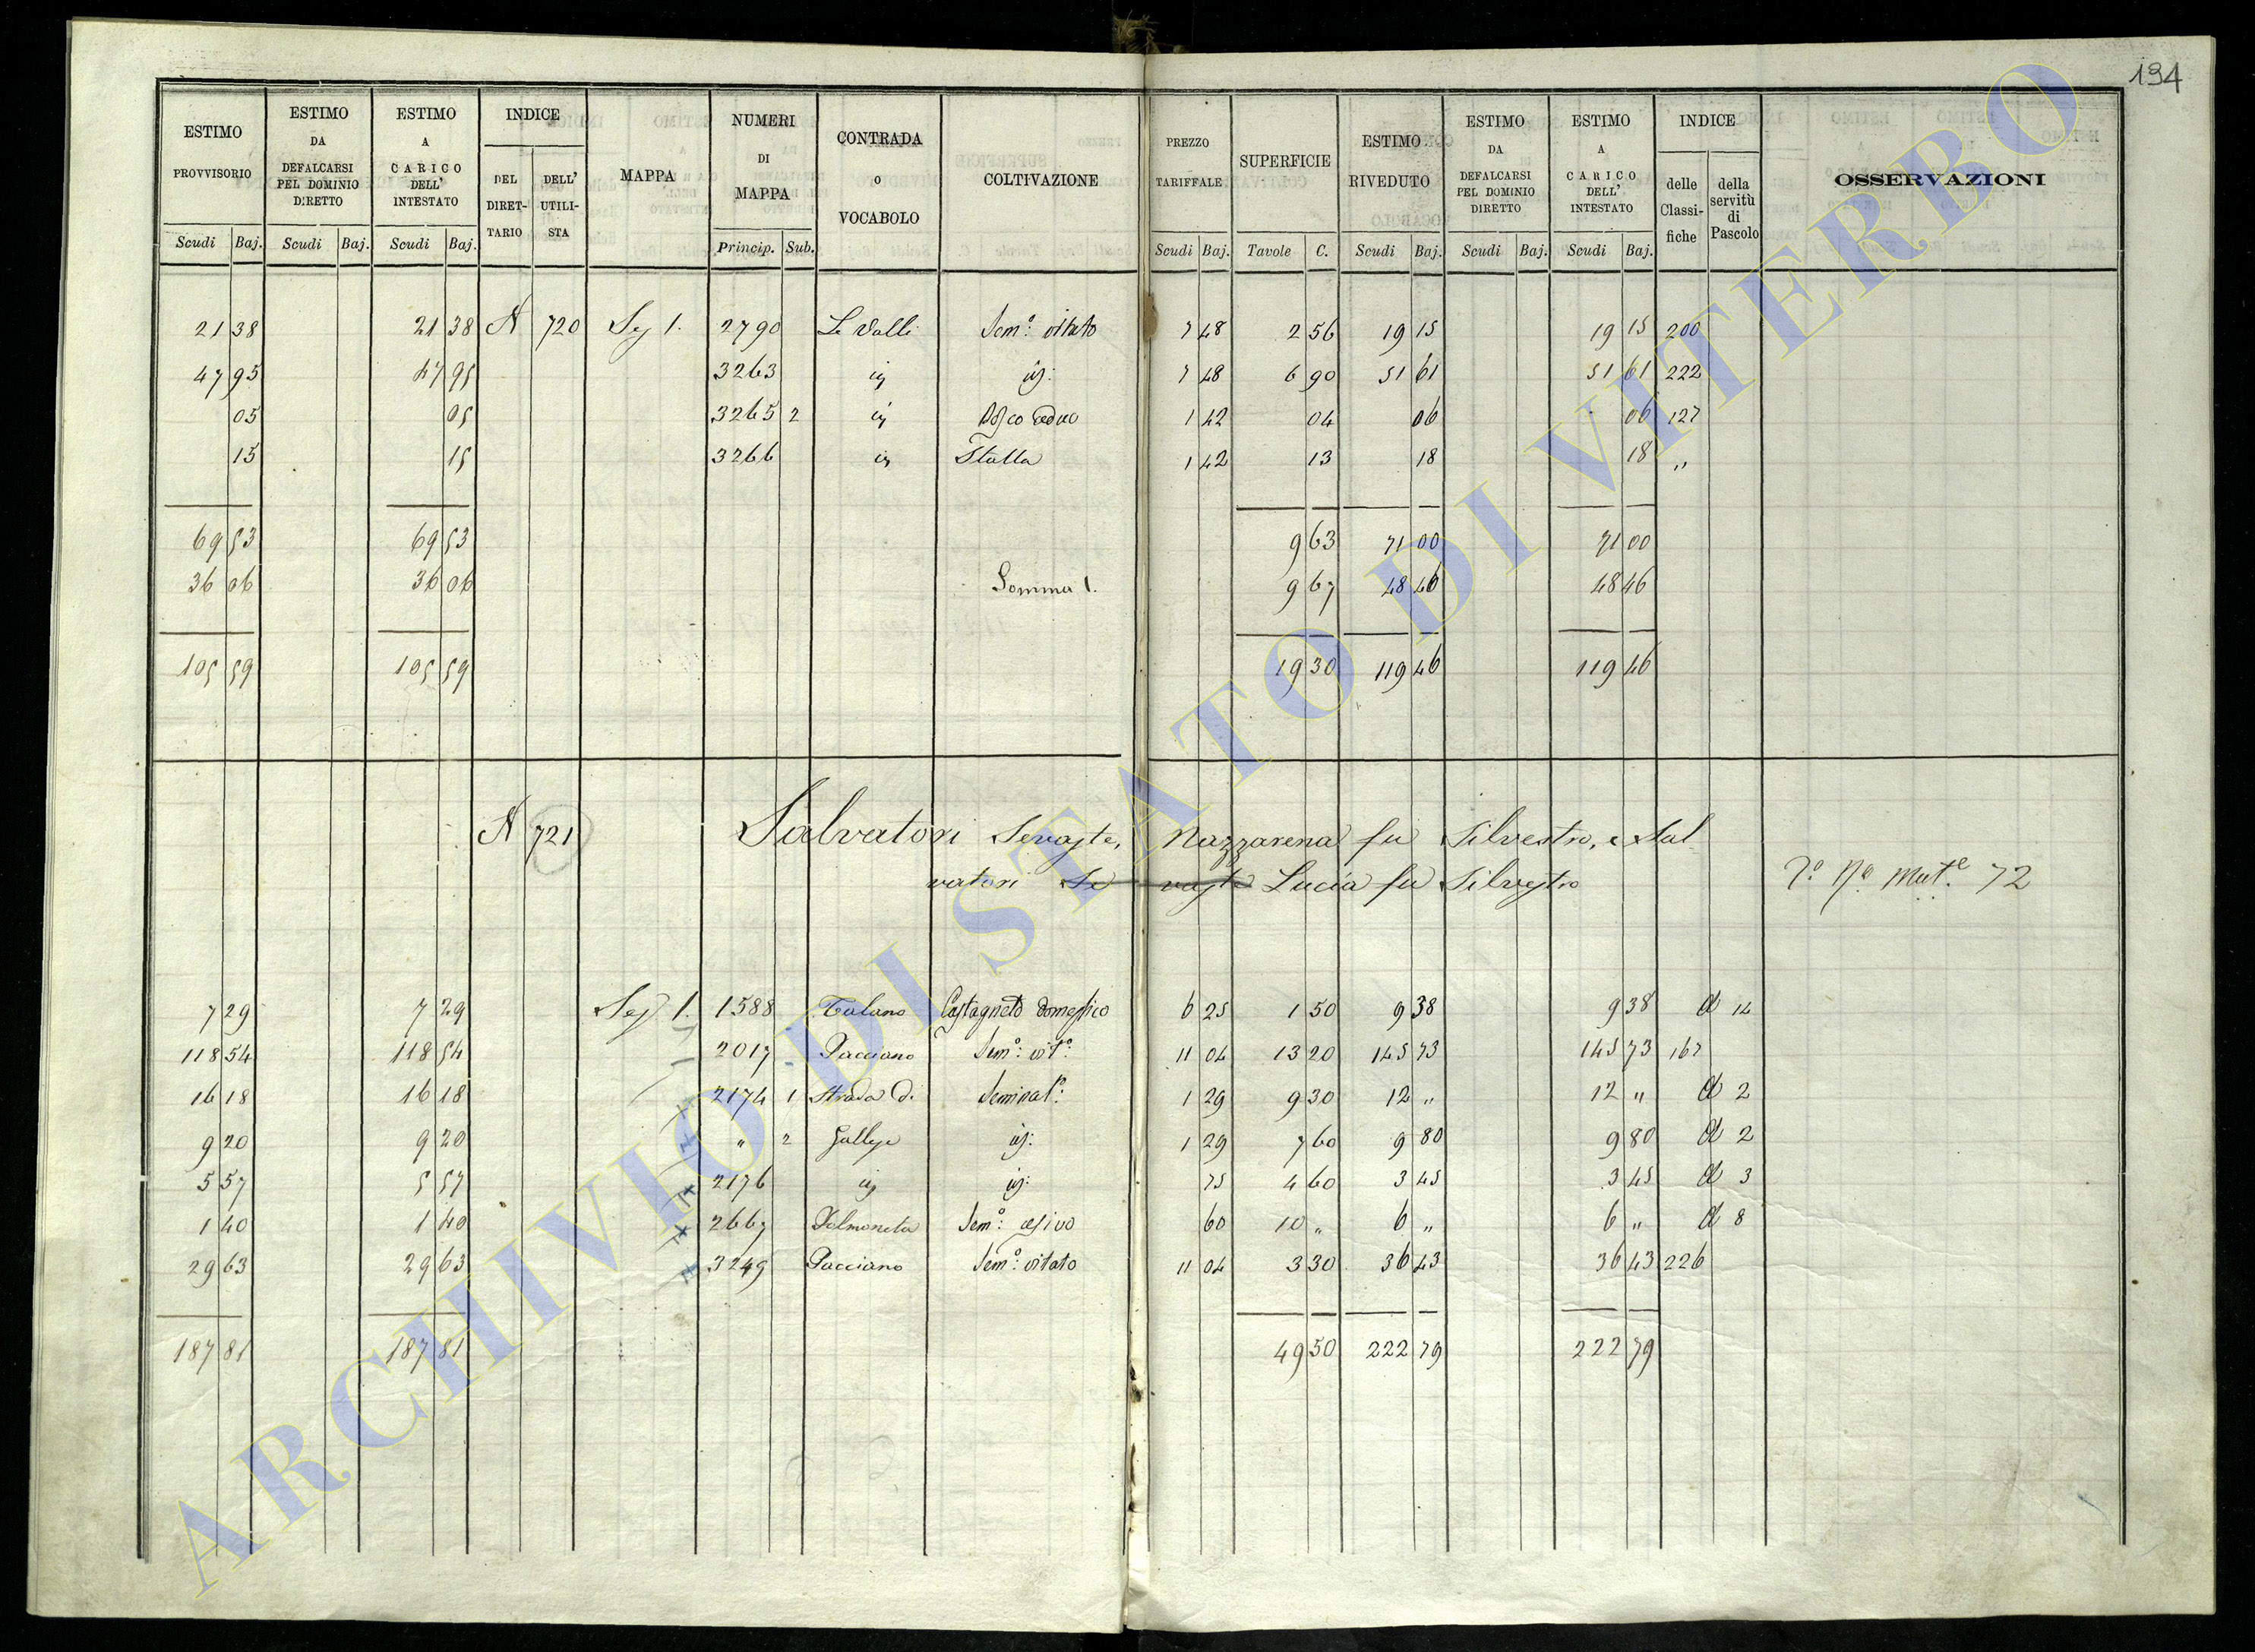 194
ESTIMO PROVVISORIO | ESTIMO DA DEFALCARSI PEL DOMINIO DIRETTO | ESTIMO A CARICO DELL' INTESTATO | INDICE DEL DIRET-TARIO | DELL' UTILI-STA | MAPPA | NUMERI DI MAPPA | CONTRADA O VOCABOLO | COLTIVAZIONE | PREZZO TARIFFALE | SUPERFICIE | ESTIMO RIVEDUTO | ESTIMO DA DEFALCARSI PEL DOMINIO DIRETTO | ESTIMO A CARICO DELL' INTESTATO | INDICE delle Classi-fiche | della servitù di Pascolo | OSSERVAZIONI
Scudi | Baj. | Scudi | Baj. | Scudi | Baj. | Princip. | Sub. | Scudi | Baj. | Tavole | C. | Scudi | Baj. | Scudi | Baj. | Scudi | Baj.
21 38 | 21 38 | A 720 | Sez 1. | 2790 | Le Valli | Sem.º vitato | 7 48 | 2 56 | 19 15 | 19 15 | 200
47 95 | 47 95 | 3263 | 7 48 | 6 90 | 51 61 | 51 61 | 222
05 | 05 | 3265 2 | Bosco ceduo | 1 42 | 04 | 06 | 06 | 127
15 | 15 | 3266 | Stalla | 1 42 | 13 | 18 | 18 | "
69 53 | 69 53 | 9 63 | 71 00 | 71 00
36 06 | 36 06 | Somma 1. | 9 67 | 48 46 | 48 46
105 59 | 105 59 | 19 30 | 119 46 | 119 46
A 721 | Salvatori Nazzarena fu Silvestro, e Sal
vatori Lucia fu Silvestro | Mut.e 72
7 29 | 7 29 | Sez 1. | 1588 | Talano | Castagneto domestico | 6 25 | 1 50 | 9 38 | 9 38 | A 14
118 54 | 118 54 | 2017 | Pacciano | Sem.º vit.º | 11 04 | 13 20 | 145 73 | 145 73 | 167
16 18 | 16 18 | 2174 1 | Strada di | Seminat.º | 1 29 | 9 30 | 12 " | 12 " | A 2
9 20 | 9 20 | " 2 | Gallese | 1 29 | 7 60 | 9 80 | 9 80 | A 2
5 57 | 5 57 | 2176 | 75 | 4 60 | 3 45 | 3 45 | A 3
1 40 | 1 40 | 2667 | Palmoneta | Sem.º | 60 | 10 " | 6 " | 6 " | A 8
29 63 | 29 63 | 3249 | Pacciano | Sem.º vitato | 11 04 | 3 30 | 36 43 | 36 43 | 226
187 81 | 187 81 | 49 50 | 222 79 | 222 79
ARCHIVIO DI STATO DI VITERBO